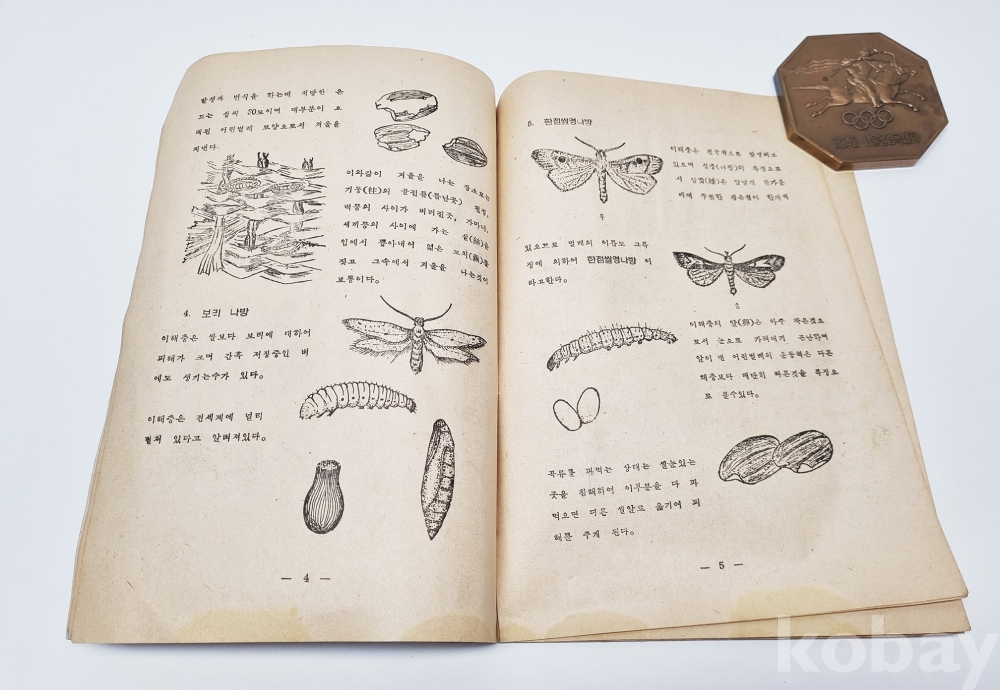 발생과 번식을 하는데 적당한 온
도는 섭씨 30도이며 대부분이 오
래된 어린벌레 모양으로서 겨울을
지낸다.
이와같이 겨울을 나는 장소로는
기둥(柱)의 틈
벽틈의 사이가 버러진곳, 가마니,
새끼등의 사이에 가는 실(絲)을
입에서 뽑아내어 엷은 고치(繭)를
짖고 그속에서 겨울을 나는것이
보통이다.
4. 보리 나방
이해충은 쌀보다 보리에 대하여
피해가 크며 간혹 저장중인 벼
에도 생기는수가 있다.
이해충은 전세계에 널리
펼쳐 있다고 알려져있다.
— 4 —
5. 한점쌀명나방
이해충은 전국적으로 발생하고
있으며 성충(나방)의 특징으로
서 암컷(雌)은 앞날개 한가운
데에 뚜렷한 검은점이 한개씩
우
있으므로 벌레의 이름도 그특
징에 의하여 한점쌀명나방 이
라고한다.
송
이해충의 알(卵)은 아주 작은것으
로서 눈으로 가려내기 곤난하며
알이 깬 어린벌레의 운동력은 다른
해충보다 대단히 빠른것을 특징으
로 볼수있다.
곡류를 파먹는 상태는 쌀눈있는
곳을 침해하여 이부분을 다 파
먹으면 다른 쌀알로 옮기여 피
해를 주게 된다.
— 5 —
kobay